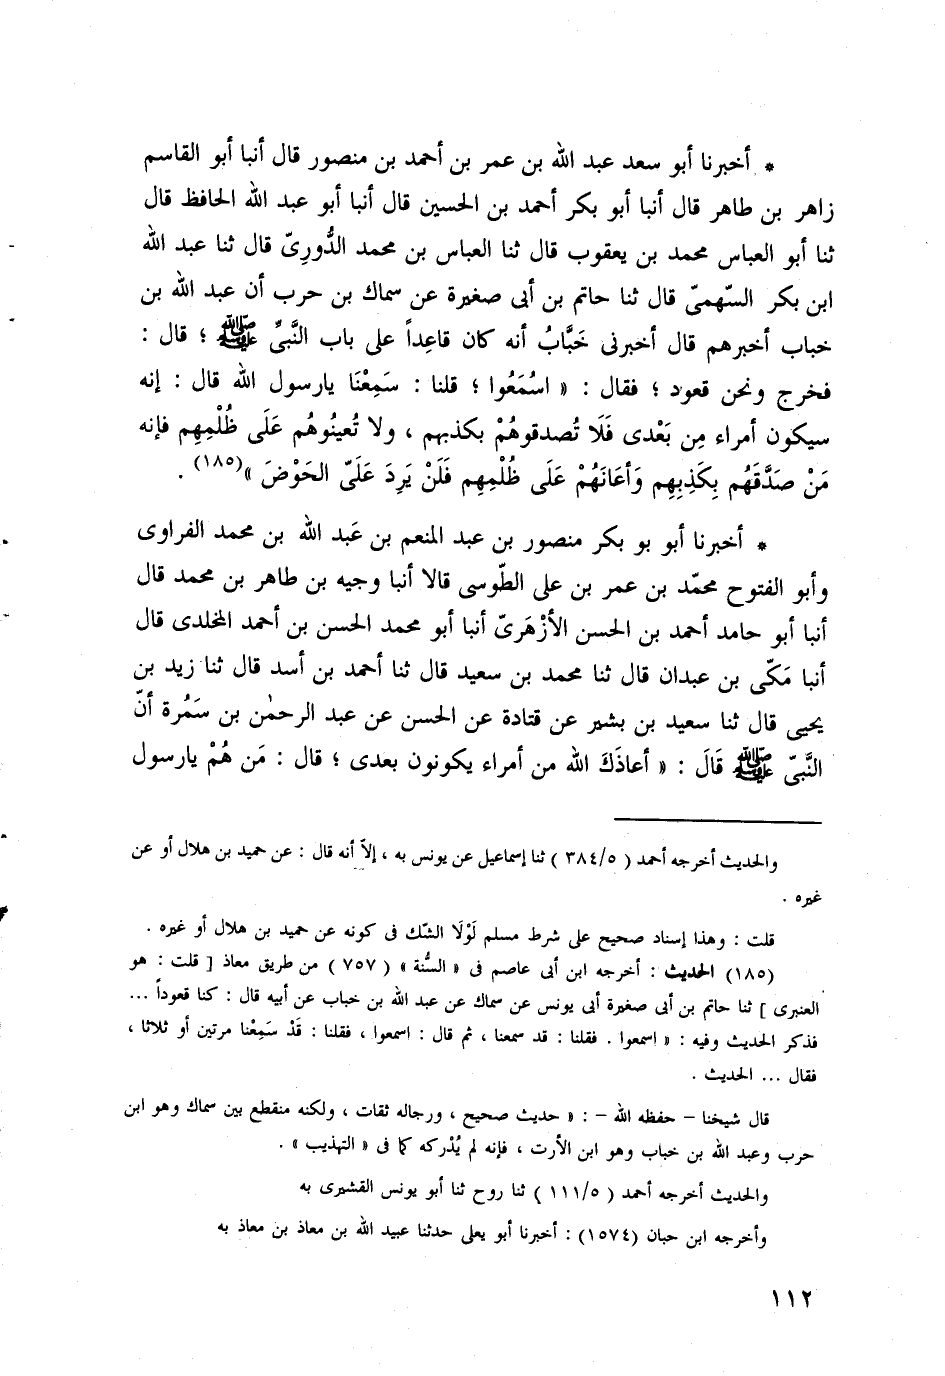 * أخبرنا أبو سعد عبد الله بن عمر بن أحمد بن منصور قال أنبا أبو القاسم
زاهر بن طاهر قال أنبا أبو بكر أحمد بن الحسين قال أنبا أبو عبد الله الحافظ قال
ثنا أبو العباس محمد بن يعقوب قال ثنا العباس بن محمد الدُّورىّ قال ثنا عبد الله
ابن بكر السّهمىّ قال ثنا حاتم بن أبى صغيرة عن سماك بن حرب أن عبد الله بن
خباب أخبرهم قال أخبرنى خَبَّابُ أنه كان قاعِداً على باب النَّبىِّ ﷺ ؛ قال :
فخرج ونحن قعود ؛ فقال : « اسْمَعُوا ؛ قلنا : سَمِعْنَا يارسول الله قال : إنه
سيكون أمراء مِن بَعْدى فَلَا تُصدقوهُمْ بكذبهم ، ولا تُعينُوهُم عَلَى ظُلْمِهِم فإنه
مَنْ صَدَّقَهُم بِكَذِبِهِم وَأعَانَهُمْ عَلَى ظُلْمِهِم فَلَنْ يَرِدَ عَلَىّ الحَوْضَ »(١٨٥) .
* أخبرنا أبو بو بكر منصور بن عبد المنعم بن عَبد الله بن محمد الفراوى
وأبو الفتوح محمّد بن عمر بن على الطّوسى قالا أنبا وجيه بن طاهر بن محمد قال
أنبا أبو حامد أحمد بن الحسن الأزْهَرىّ أنبا أبو محمد الحسن بن أحمد المخلدى قال
أنبا مَكّى بن عبدان قال ثنا محمد بن سعيد قال ثنا أحمد بن أسد قال ثنا زيد بن
يحيى قال ثنا سعيد بن بشير عن قتادة عن الحسن عن عبد الرحمٰن بن سَمُرة أنّ
النَّبىّ ﷺ قَالَ : « أعاذَكَ الله من أمراء يكونون بعدى ؛ قال : مَن هُمْ يارسول
والحديث أخرجه أحمد ( ٣٨٤/٥ ) ثنا إسماعيل عن يونس به ، إلاّ أنه قال : عن حميد بن هلال أو عن
غيره .
قلت : وهذا إسناد صحيح على شرط مسلم لَوْلَا الشّك فى كونه عن حميد بن هلال أو غيره .
(١٨٥) الحديث : أخرجه ابن أبى عاصم فى « السُّنة » ( ٧٥٧ ) من طريق معاذ [ قلت : هو
العنبرى ] ثنا حاتم بن أبى صغيرة أبى يونس عن سماك عن عبد الله بن خباب عن أبيه قال : كنا قعوداً ...
فذكر الحديث وفيه : « اسمعوا . فقلنا : قد سمعنا ، ثم قال : اسمعوا ، فقلنا : قَدْ سَمِعْنا مرتين أو ثلاثا ،
فقال ... الحديث .
قال شيخنا – حفظه الله – : « حديث صحيح ، ورجاله ثقات ، ولكنه منقطع بين سماك وهو ابن
حرب وعبد الله بن خباب وهو ابن الأرت ، فإنه لم يُدْركه كما فى « التهذيب » .
والحديث أخرجه أحمد ( ١١١/٥ ) ثنا روح ثنا أبو يونس القشيرى به
وأخرجه ابن حبان (١٥٧٤) : أخبرنا أبو يعلى حدثنا عبيد الله بن معاذ بن معاذ به
١١٢